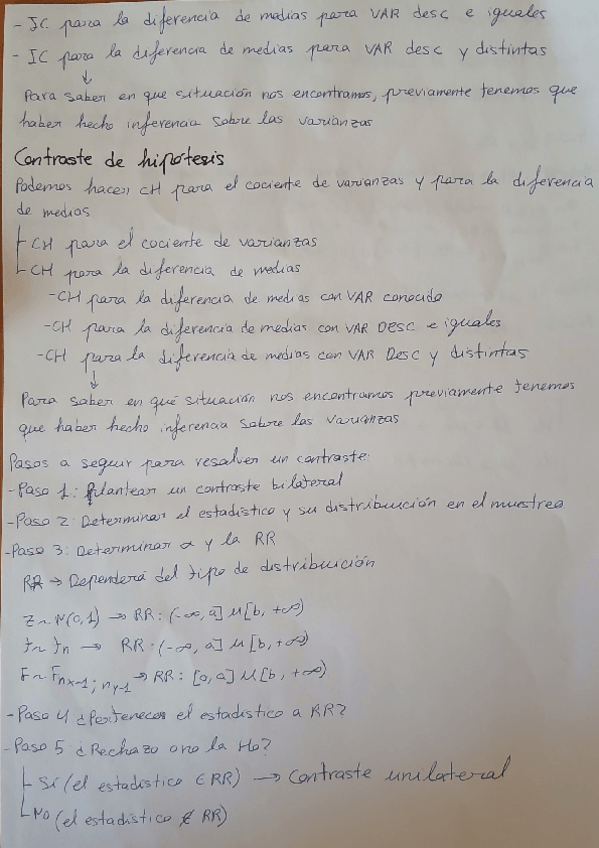 - IC para la diferencia de medias para VAR desc e iguales
- IC para la diferencia de medias para VAR desc y distintas
↓
Para saber en que situación nos encontramos, previamente tenemos que
haber hecho inferencia sobre las varianzas
Contraste de hipótesis
Podemos hacer CH para el cociente de varianzas y para la diferencia
de medias
CH para el cociente de varianzas
CH para la diferencia de medias
-CH para la diferencia de medias con VAR conocida
-CH para la diferencia de medias con VAR DESC e iguales
-CH para la diferencia de medias con VAR Desc y distintas
↓
Para saber en qué situación nos encontramos previamente tenemos
que haber hecho inferencia sobre las varianzas
Pasos a seguir para resolver un contraste:
-Paso 1: Plantear un contraste bilateral
-Paso 2: Determinar el estadístico y su distribuición en el muestreo
-Paso 3: Determinar α y la RR
RR → Dependerá del tipo de distribuición
Z ~ N(0,1) → RR: (-∞, a] U [b, +∞)
t ~ tn → RR: (-∞, a] U [b, +∞)
F ~ Fnx-1; ny-1 → RR: [0, a] U [b, +∞)
-Paso 4 ¿Pertenece el estadístico a RR?
-Paso 5 ¿Rechazo o no la H0?
Sí (el estadístico ∈ RR) → Contraste unilateral
No (el estadístico ∉ RR)